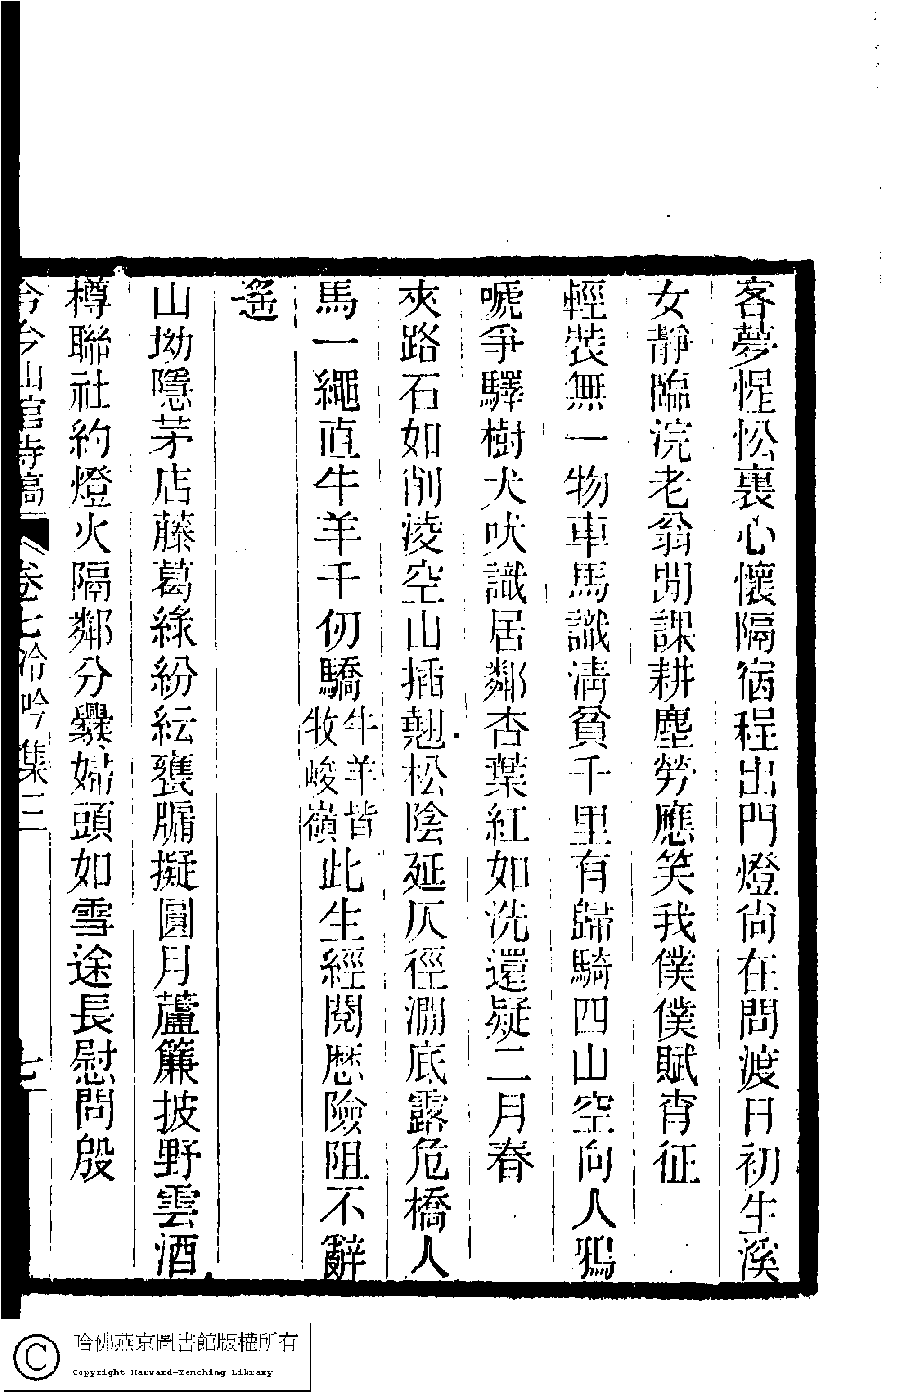 客夢惺忪裏心懷隔宿程出門燈尙在問渡日初生溪
女靜臨浣老翁閒課耕塵勞應笑我僕僕賦宵征
輕裝無一物車馬識淸貧千里有歸騎四山空向人鴉
嗁爭驛樹犬吠識居鄰杏葉紅如洗還疑二月春
夾路石如削淩空山插翹松陰延仄徑澗底露危橋人
馬一繩直牛羊千仞驕牛羊皆牧峻嶺此生經閱歷險阻不辭
遙
山坳隱茅店藤葛綠紛紜甕牖擬圓月蘆簾披野雲酒
樽聯社約燈火隔鄰分爨婦頭如雪途長慰問殷
今山館詩稿 卷七冷吟集三 七
哈佛燕京圖書館版權所有
Copyright Harvard-Yenching Library